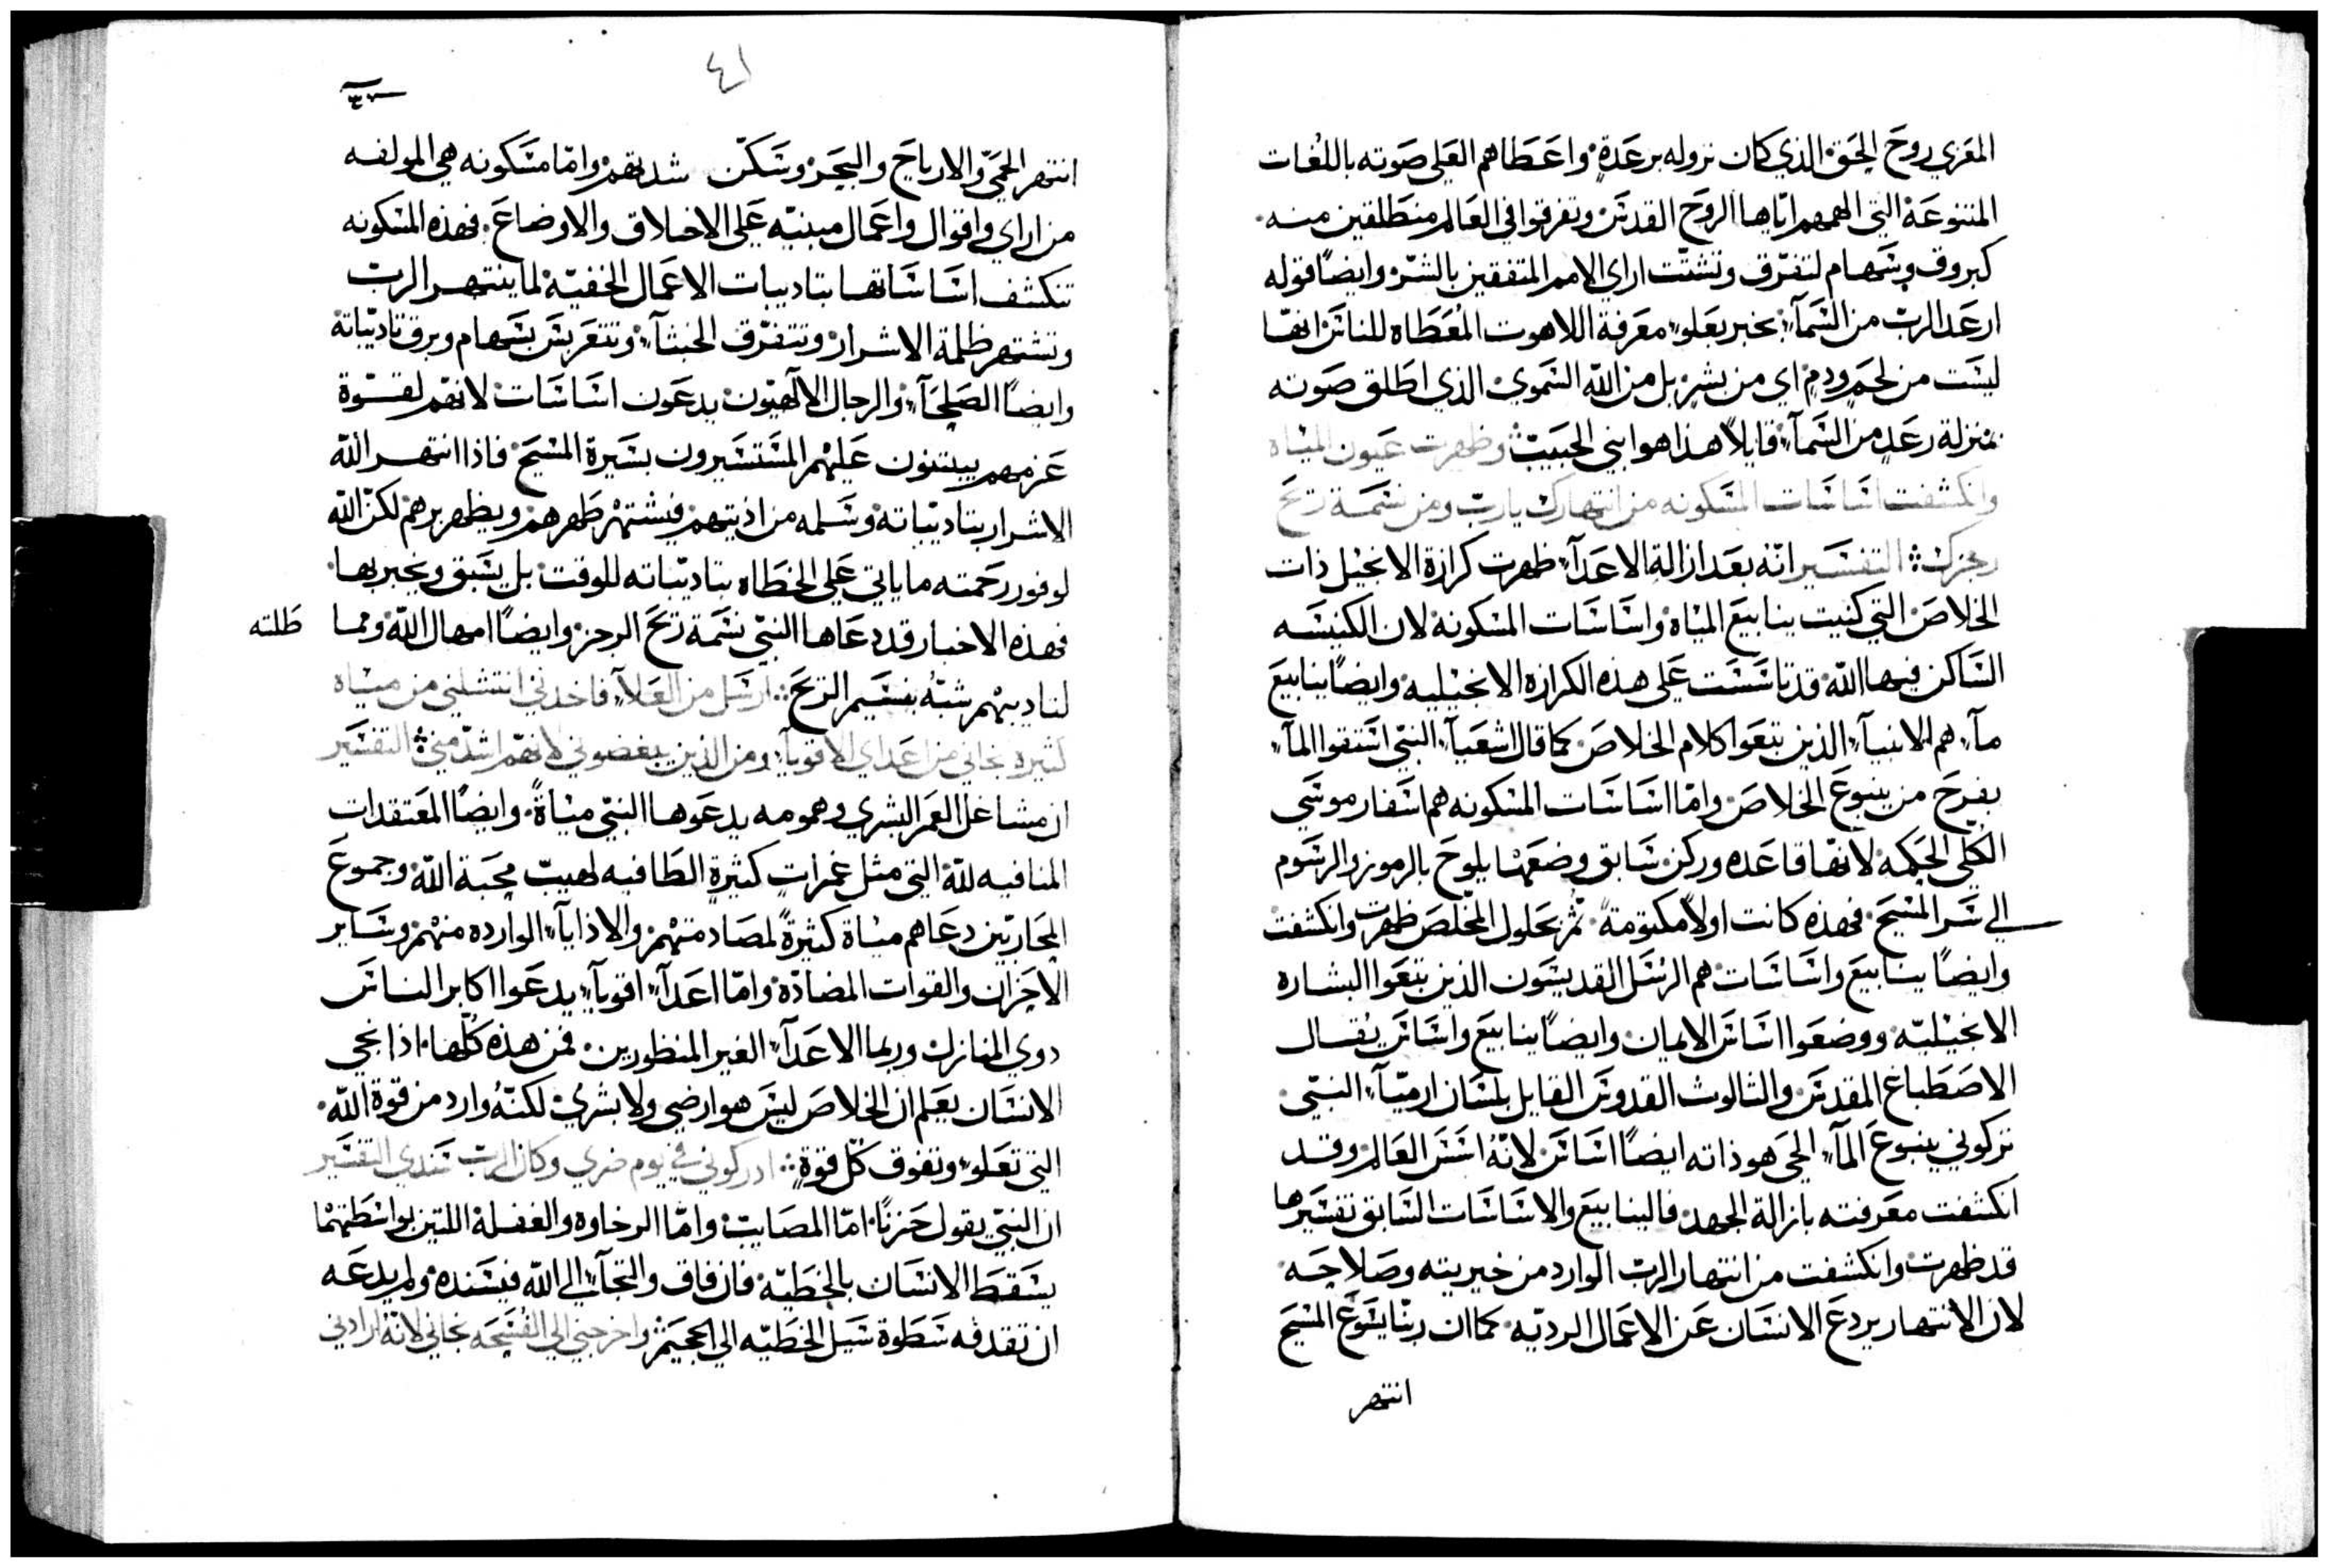 المعزي روح الحق الذي كان نزوله برعدة واعطاهم العلي صوته باللغات
المتنوعة التي الهمهم اياها الروح القدس وتفرقوا في العالم منطلقين منه
كبروق وسهام لتفرق وتشتت اراي الامم المتفقين بالشر وايضًا قوله
ارعد الرب من السمآء يخبر بعلو معرفة اللاهوت المعطاه للناس انها
ليست من لحم ودم اي من بشر بل من الله السموي الذي اطلق صوته
بمنزلة رعد من السمآء قايلاً هذا هو ابني الحبيب وظهرت عيون المياه
وانكشفت اساسات المسكونه من انتهارك يارب ومن نسمة ريح
رجزك التفسير انه بعد ازالة الاعدآء ظهرت كرازة الانجيل ذات
الخلاص التي كنيت ينابيع المياة واساسات المسكونة لان الكنيسه
الساكن فيها الله قد تاسست على هذه الكرازه الانجيليه وايضًا ينابيع
مآء هم الانبيآء الذين نبعوا كلام الخلاص كما قال اشعيآء النبي استقوا المآء
بفرح من ينبوع الخلاص واما اساسات المسكونه هم اسفار موسي
الكلي الحكمه لانها قاعده وركن سابق وضعها يلوح بالرموز والرسوم
الي سر المسيح فهذه كانت اولاً مكتومة ثم بحلول المخلص ظهرت وانكشفت
وايضًا ينابيع واساسات هم الرسل القديسون الذين نبعوا البشاره
الانجيليه ووضعوا اساس الايمان وايضًا ينابيع واساس يقال
الاصطباغ المقدس والثالوث القدوس القايل بلسان ارميآء النبي
تركوني ينبوع المآء الحي هو ذاته ايضًا اساس لانه اسس العالم وقد
انكشفت معرفته بازالة الجهد فالينابيع والاساسات السابق تفسيرها
قد ظهرت وانكشفت من انتهار الرب الوارد من خيريته وصلاحه
لان الانتهار يردع الانسان عن الاعمال الرديه كما ان ربنا يسوع المسيح
انتهر
٤١
انتهر الحمي والارياح والبحر وسكن شدتهم واما مسكونه هي المولفه
من اراي واقوال واعمال مبنيه على الاخلاق والاوضاع فهذه المسكونه
تنكشف اساساتها بتاديبات الاعمال الخفية لما ينتهر الرب
وتشتهر ظلمة الاشرار وتتفرق الخبثآء وتتعربس بسهام وبرق تاديباته
وايضًا الصلحآء والرجال الالهيون يدعون اساسات لانهم لقسوة
عزمهم يبتنون عليهم المستسيرون بسيرة المسيح فاذا انتهر الله
الاشرار بتاديباته وسلمه من اذيتهم فيشتهر طهرهم ويظهر برهم لكن الله
لوفور رحمته ما ياتي على الخطاه بتاديباته للوقت بل يسبق ويخبر بها
فهذه الاخبار قد دعاها النبي نسمة ريح الرجز وايضًا امهال الله ومما طلته
لتاديبهم شبه بنسيم الريح ارسل من العلآء فاخدني انتشلني من مياه
كثيرة نجاني من اعداي الاقويآء ومن الذين يبغضوني لانهم اشد مني التفسير
ان مشاغل العمر البشري وهمومه يدعوها النبي مياةً وايضًا المعتقدات
المنافيه لله التي مثل غمرات كثيرة الطافيه لهيب محبة الله وجموع
المحاربين دعاهم مياة كثيرةً لمصادمتهم والاذايآء الوارده منهم وساير
الاحزان والقوات المضادة واما اعدآء اقويآء يدعوا اكابر الناس
دوي المنازل وربما الاعدآء الغير المنظورين فمن هذه كلها اذا نجي
الانسان يعلم ان الخلاص ليس هو ارضي ولا بشري لكنه وارد من قوة الله
التي تعلو وتفوق كل قوة ادركوني في يوم ضري وكان الرب سندي التفسير
ان النبي يقول حزنًا اما المصايب واما الرخاوه والغفلة اللتين بواسطتهما
يسقط الانسان بالخطيه فان فاق والتجآء الي الله فيسنده ولم يدعه
ان تقدفه سطوة سيل الخطيه الي الجحيم واخرجني الي الفسحه نجاني لانه ارادني